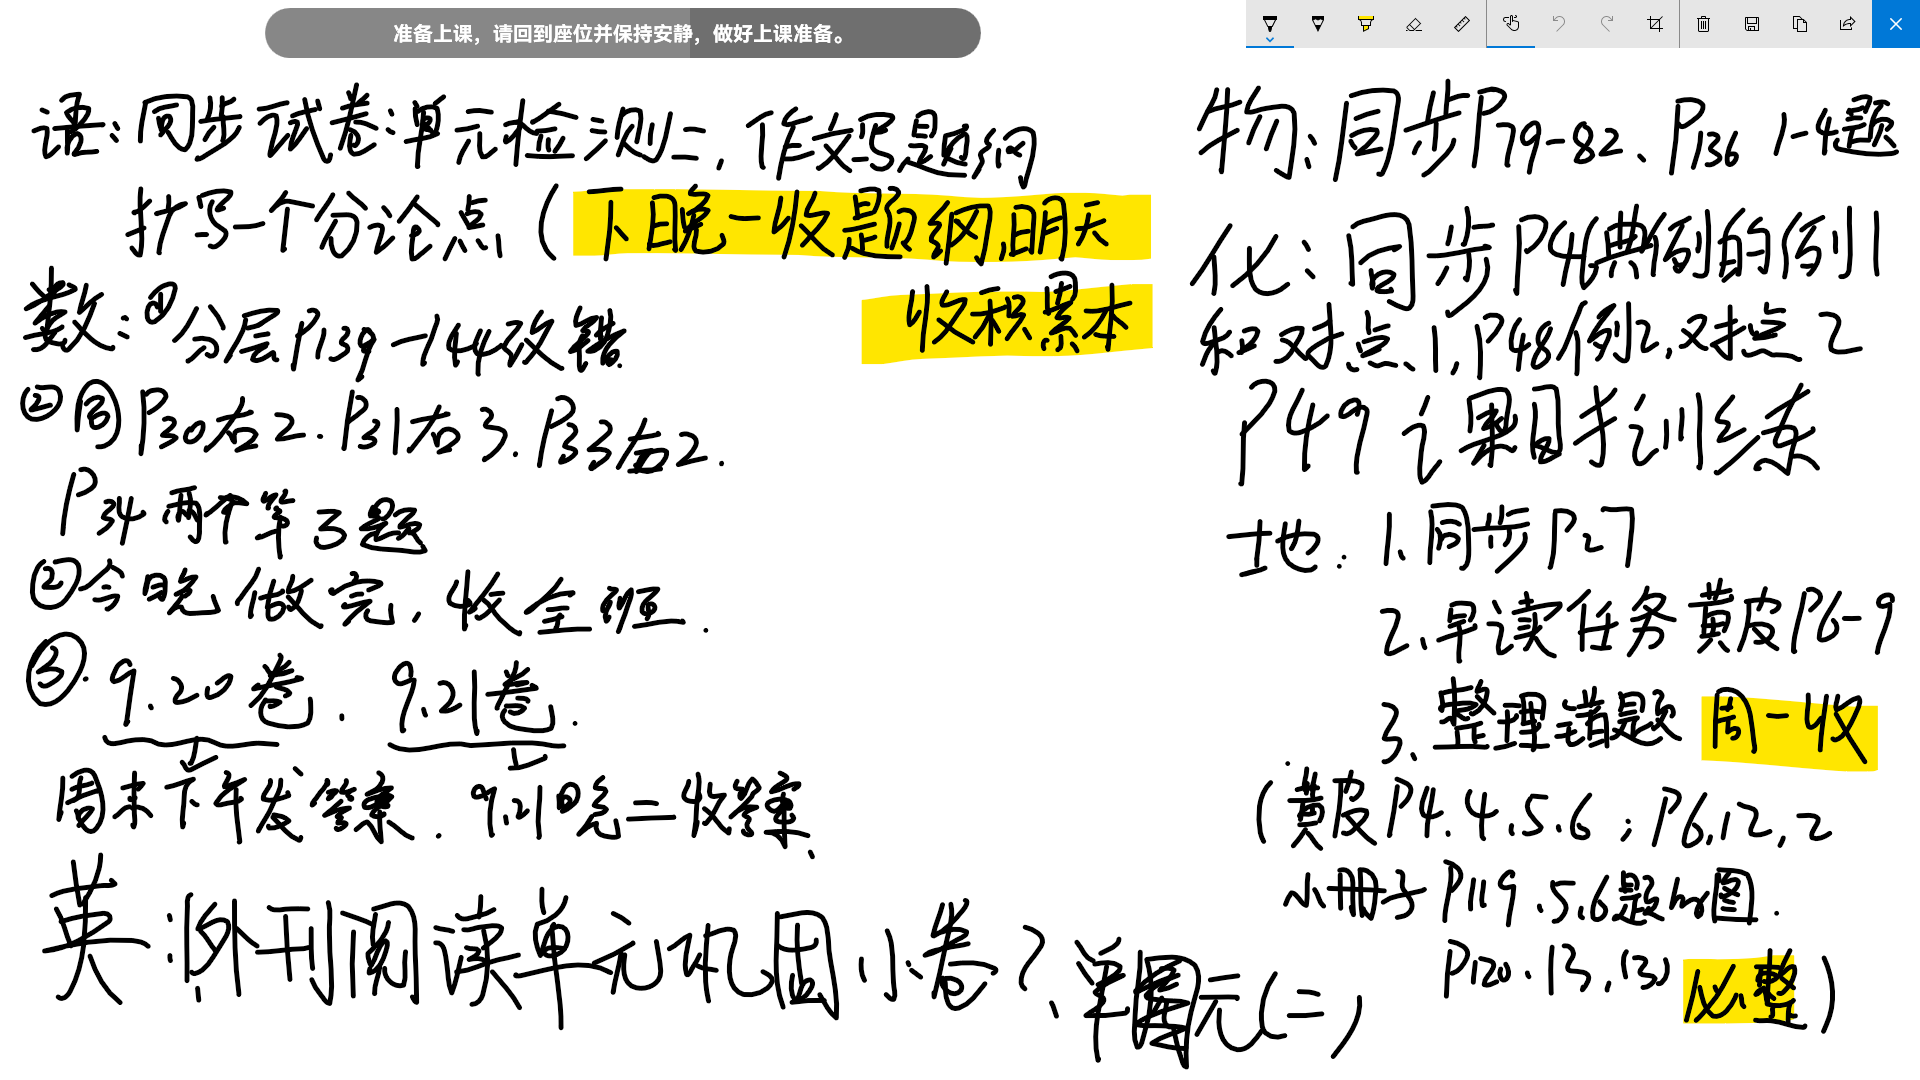 准备上课，请回到座位并保持安静，做好上课准备。
语：同步试卷：单元检测二，作文写题纲
抄写一个分论点（下晚一收题纲，明天
收积累本
数：①分层P139-144改错.
②同P30右2. P31右3. P33右2.
P34两个第3题
②今晚做完，收全班.
③. 9.20卷. 9.21卷.
周末下午发答案. 9.21日晚二收答案.
英：外刊阅读单元巩固小卷2、单元(二)
物：同步P79-82、P136 1-4题
化：同步P46典例的例1
和对点、1, P48例2,对点2
P49 课时训练
地：1、同步P27
2、早读任务黄皮P6-9
3、整理错题 周一收
(黄皮P4. 4.5.6；P6,12,2
小册子P119.5,6题图.
P120.13,(3) 必整)